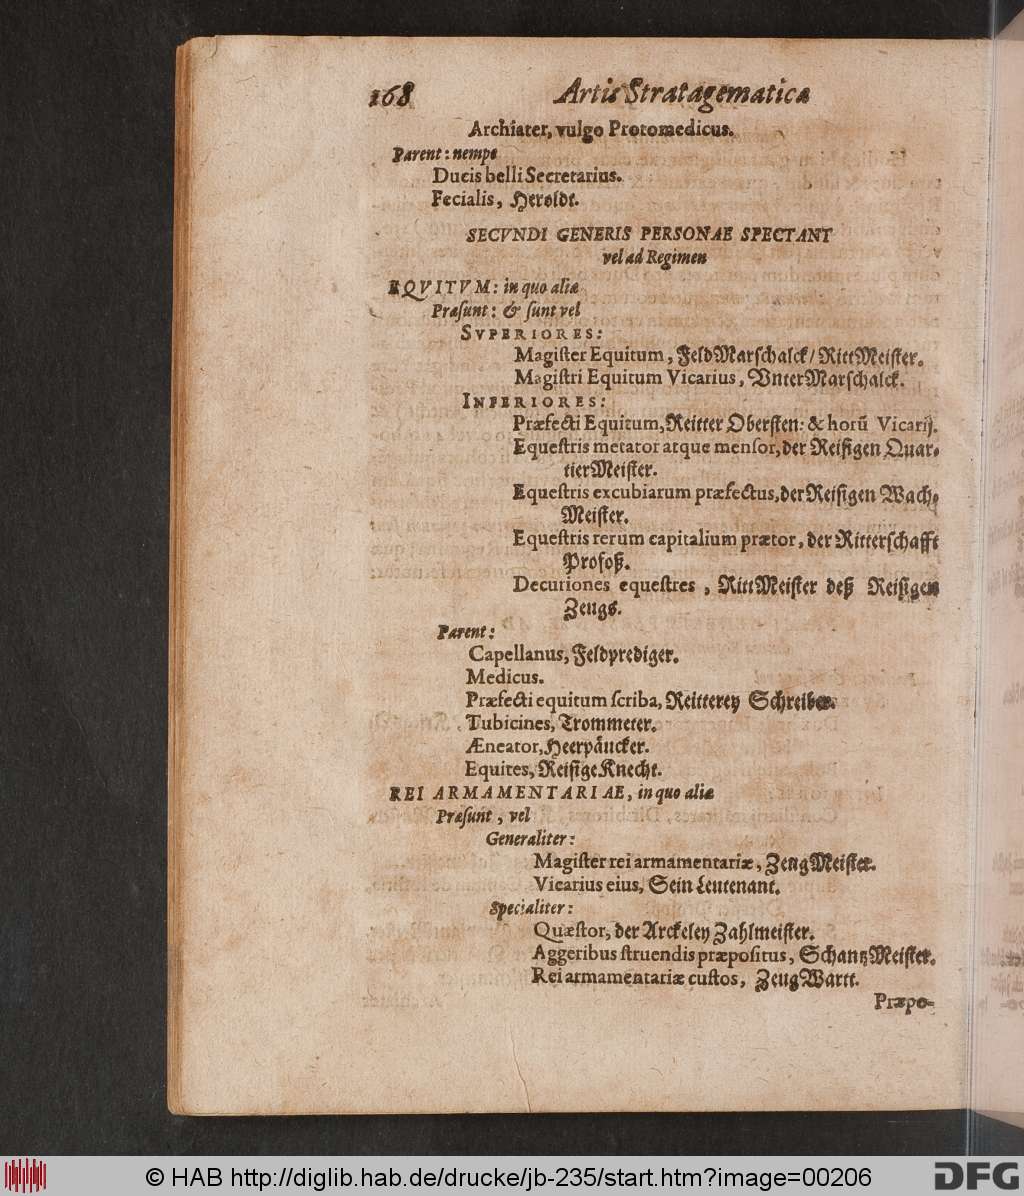 168 Artis Stratagematicæ
Archiater, vulgo Protomedicus.
Parent: nempe
Ducis belli Secretarius.
Fecialis, Heroldt.
SECVNDI GENERIS PERSONAE SPECTANT
vel ad Regimen
EQVITVM: in quo aliæ
Præsunt: & sunt vel
SVPERIORES:
Magister Equitum, FeldMarschalck / RittMeister.
Magistri Equitum Vicarius, VnterMarschalck.
INFERIORES:
Præfecti Equitum, Reitter Obersten: & horū Vicarij.
Equestris metator atque mensor, der Reisigen Quar-
tierMeister.
Equestris excubiarum præfectus, der Reisigen Wach-
Meister.
Equestris rerum capitalium prætor, der Ritterschafft
Profoß.
Decuriones equestres, RittMeister deß Reisigen
Zeugs.
Parent:
Capellanus, Feldprediger.
Medicus.
Præfecti equitum scriba, Reitterey Schreiber.
Tubicines, Trommeter.
Æneator, Heerpäucker.
Equites, Reisige Knecht.
REI ARMAMENTARIAE, in quo aliæ
Præsunt, vel
Generaliter:
Magister rei armamentariæ, ZeugMeister.
Vicarius eius, Sein Leutenant.
Specialiter:
Quæstor, der Arckeley Zahlmeister.
Aggeribus struendis præpositus, SchantzMeister.
Rei armamentariæ custos, ZeugWartt.
Præpo-
© HAB http://diglib.hab.de/drucke/jb-235/start.htm?image=00206
DFG